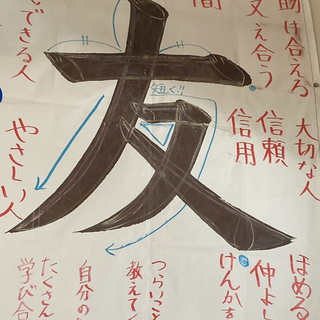 助け合える
支え合う
間
友
短く!!
できる人
大切な人
信頼
信用
やさしい人
ほめる
仲よし
けんかを
つらいこと
教えてく
自分の
たくさん
学び合